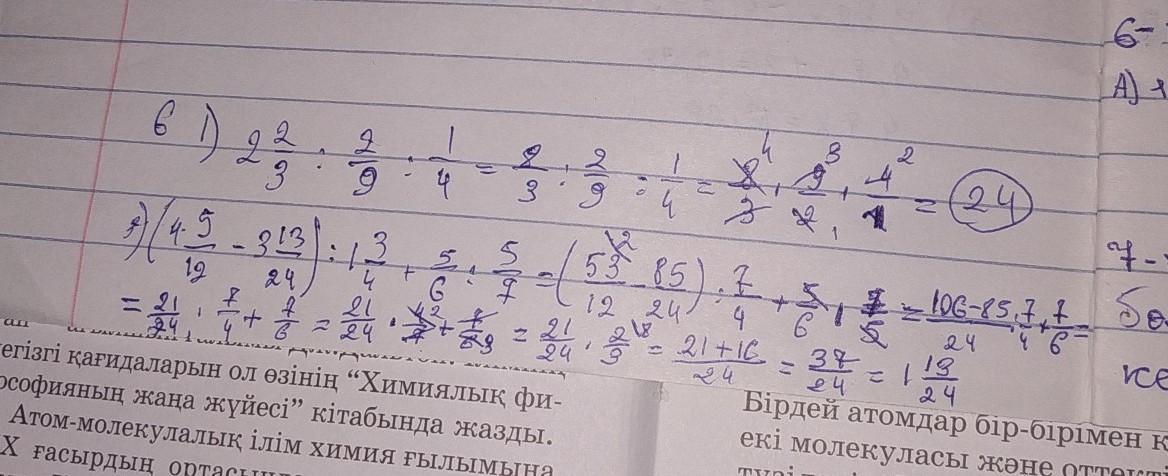 6-
А)
6 1) 2 2/3 : 2/9 : 1/4 = 8/3 : 2/9 : 1/4 = 8/3 · 9/2 · 4/1 = 24
(4 5/12 - 3 13/24) : 1 3/4 + 5/6 : 5/7 = (53/12 - 85/24) : 7/4 + 5/6 · 7/5 = 106-85/24 : 7/4 + 7/6 =
= 21/24 : 7/4 + 7/6 = 21/24 ·
= 21/24 · = 21+16/24 = 37/24 = 1 13/24
7-
негізгі қағидаларын ол өзінің “Химиялық фи-
лософияның жаңа жүйесі” кітабында жазды.
Атом-молекулалық ілім химия ғылымына
X ғасырдың
Бірдей атомдар бір-бірімен
екі молекуласы және